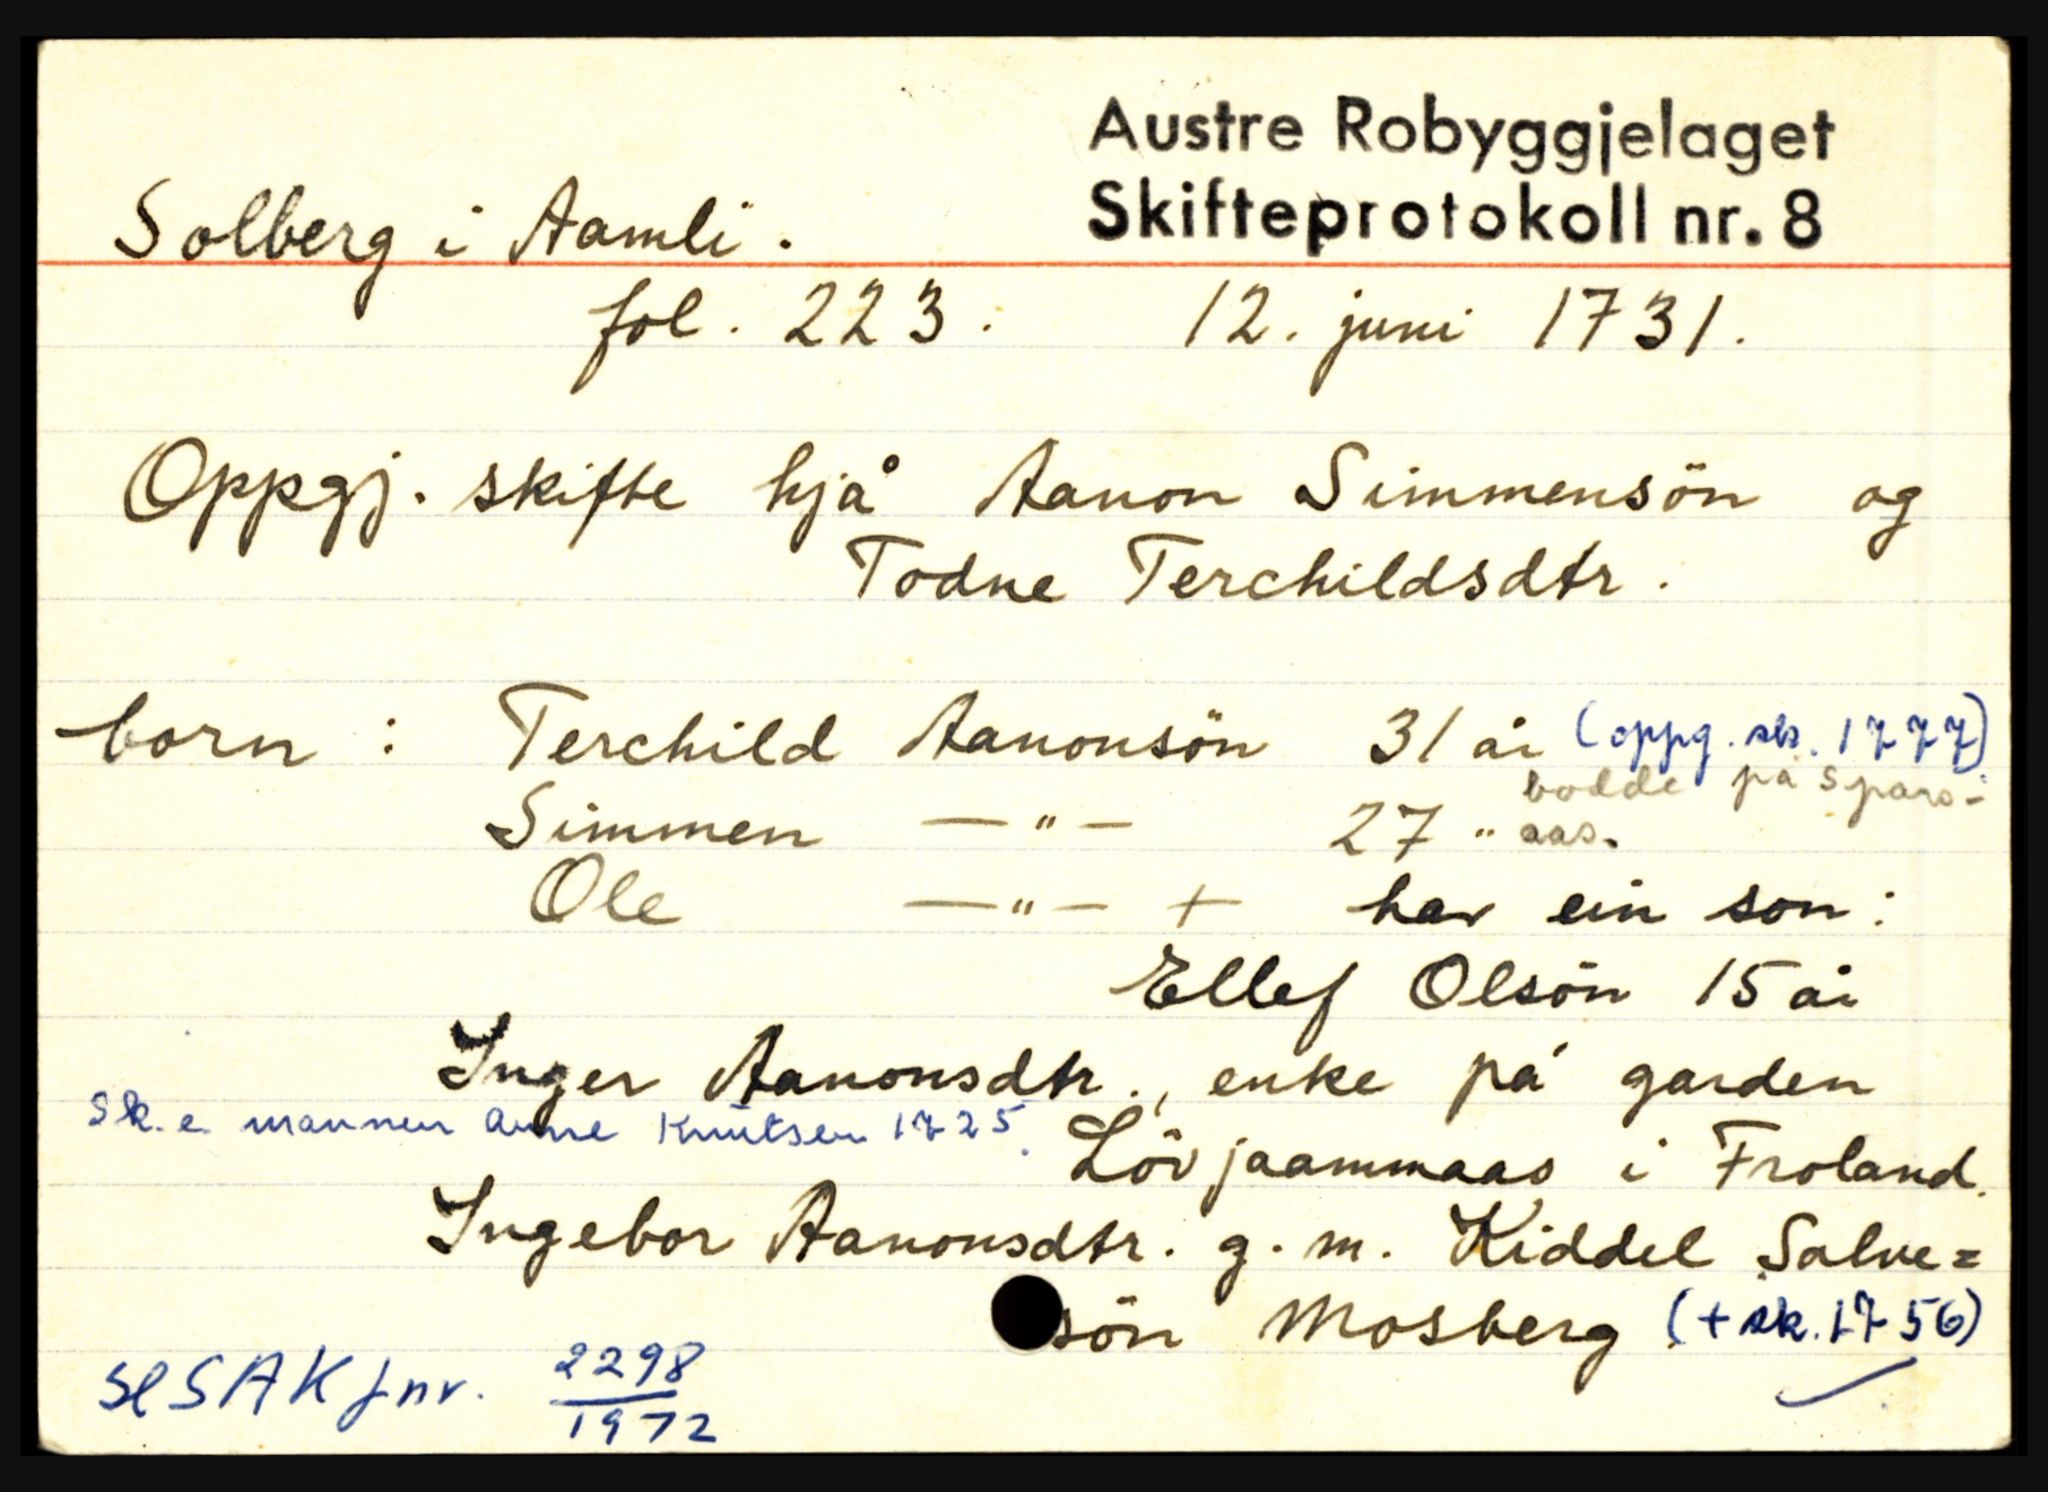 Austre Robyggjelaget
Skifteprotokoll nr. 8
Solberg i Aamli.
fol. 223. 12. juni 1731.
Oppgj. skifte hjå Aanon Simmensön og
Todne Terchildsdtr.
born : Terchild Aanonsön 31 år (oppg. sk. 1777)
bodde på Spars-
Simmen —"— 27 " aas.
Ole —"— + har ein son:
Ellef Olsön 15 år
Inger Aanonsdtr., enke på garden
Sk. e. mannen Anne Knutsen 1725.
Lövjaammaas i Froland.
Ingebor Aanonsdtr. g. m. Kiddel Salve=
sön Mosberg (+ sk. 1756)
se SAK jnr. 2298/1972